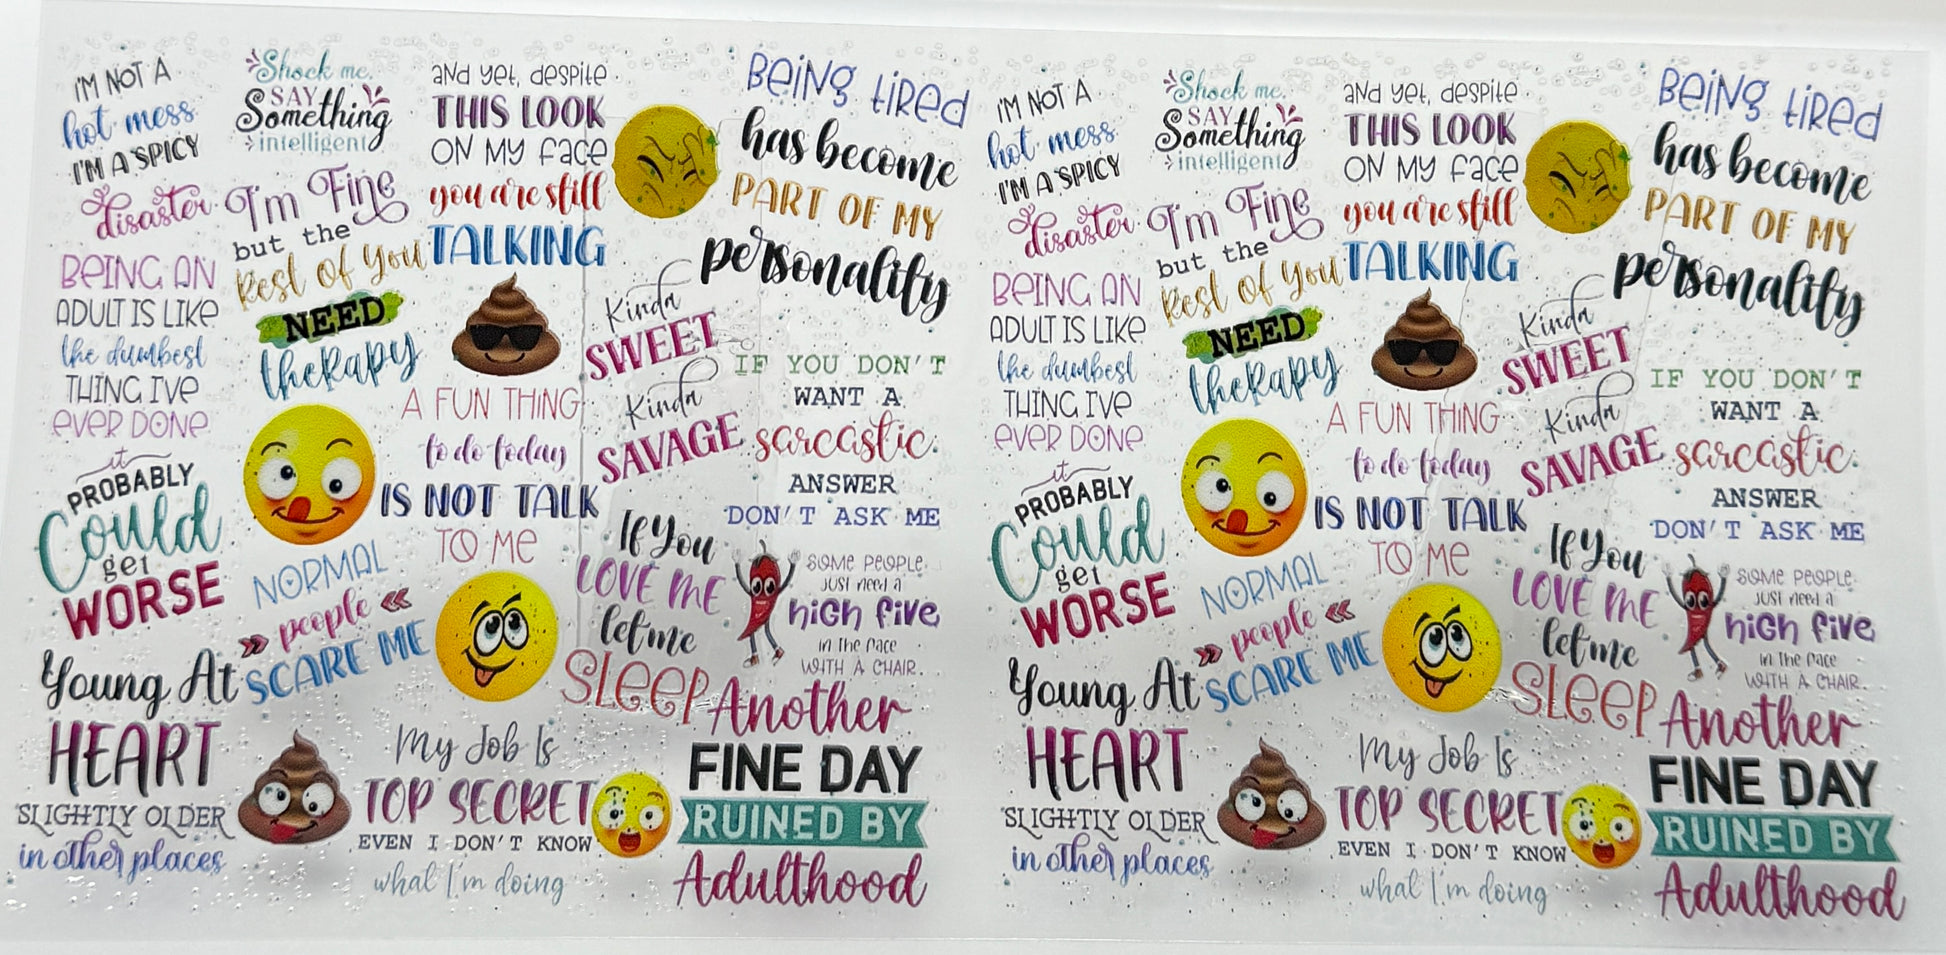 I'M NOT A
hot mess
I'M A SPICY
disaster
Shock me.
SAY
Something
intelligent
and yet, despite
THIS LOOK
ON MY FACE
you are still
TALKING
BEING TIRED
has become
PART OF MY
personality
I'm Fine
but the
Rest of You
NEED
therapy
BEING AN
ADULT IS LIKE
the dumbest
THING I'VE
EVER DONE
Kinda
SWEET
Kinda
SAVAGE
A FUN THING
to do today
IS NOT TALK
TO ME
IF YOU DON'T
WANT A
sarcastic
ANSWER
DON'T ASK ME
it
PROBABLY
Could
get
WORSE
NORMAL
people
SCARE ME
If You
LOVE ME
let me
SLEEP
SOME PEOPLE
JUST NEED A
HIGH FIVE
IN THE FACE
WITH A CHAIR.
Young At
HEART
SLIGHTLY OLDER
in other places
My Job Is
TOP SECRET
EVEN I DON'T KNOW
what I'm doing
Another
FINE DAY
RUINED BY
Adulthood
I'M NOT A
hot mess
I'M A SPICY
disaster
Shock me.
SAY
Something
intelligent
and yet, despite
THIS LOOK
ON MY FACE
you are still
TALKING
BEING TIRED
has become
PART OF MY
personality
I'm Fine
but the
Rest of You
NEED
therapy
BEING AN
ADULT IS LIKE
the dumbest
THING I'VE
EVER DONE
Kinda
SWEET
Kinda
SAVAGE
A FUN THING
to do today
IS NOT TALK
TO ME
IF YOU DON'T
WANT A
sarcastic
ANSWER
DON'T ASK ME
it
PROBABLY
Could
get
WORSE
NORMAL
people
SCARE ME
If You
LOVE ME
let me
SLEEP
SOME PEOPLE
JUST NEED A
HIGH FIVE
IN THE FACE
WITH A CHAIR.
Young At
HEART
SLIGHTLY OLDER
in other places
My Job Is
TOP SECRET
EVEN I DON'T KNOW
what I'm doing
Another
FINE DAY
RUINED BY
Adulthood